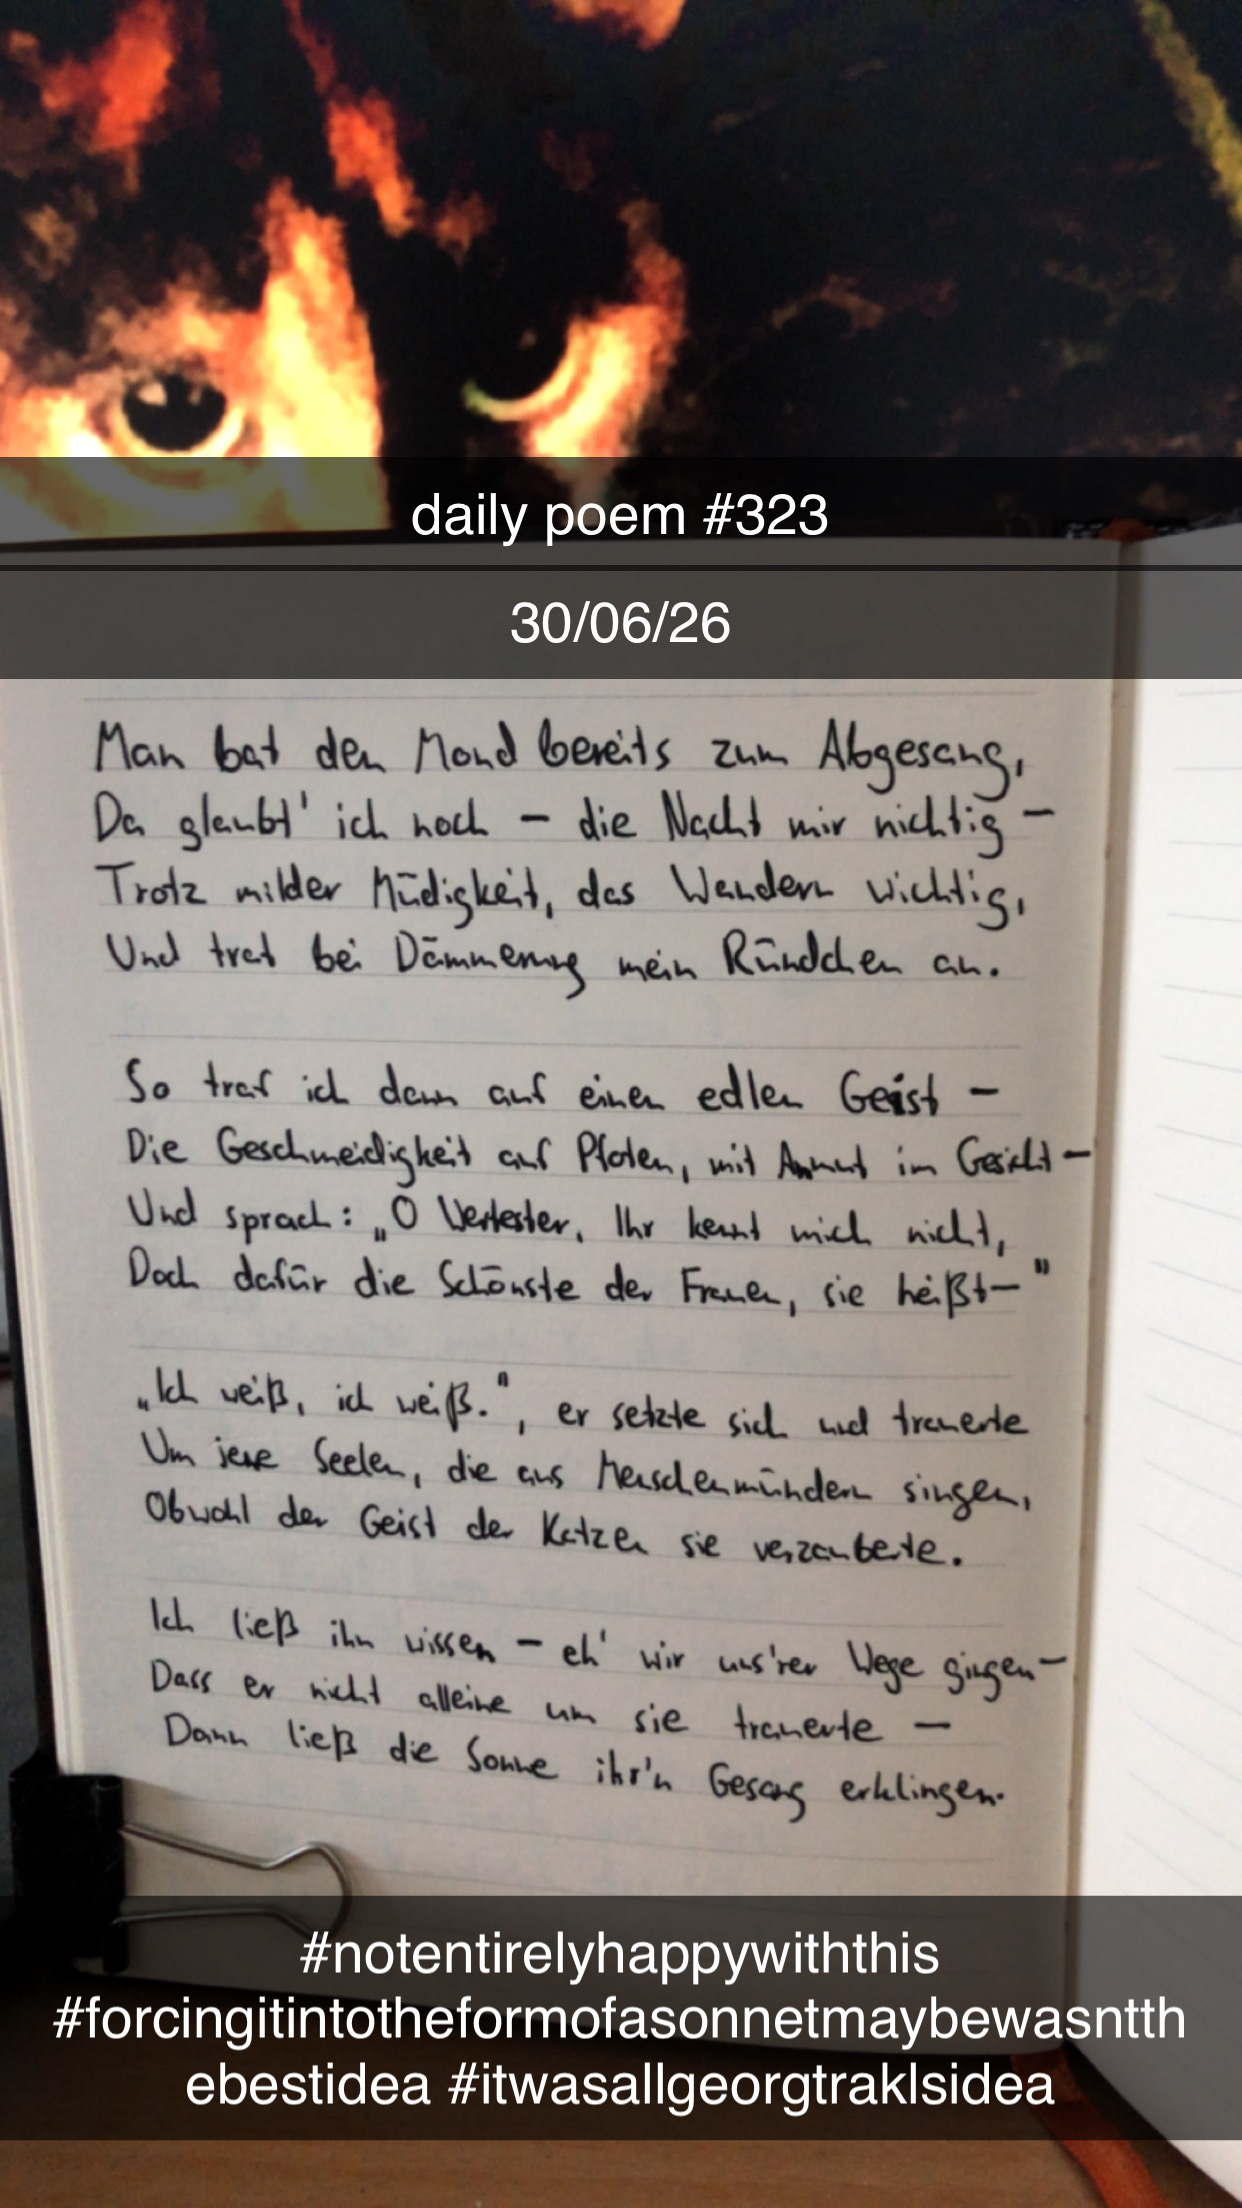 daily poem #323
30/06/26
Man bat den Mond bereits zum Abgesang,
Da glaubt' ich noch – die Nacht mir nichtig –
Trotz milder Müdigkeit, das Wandern wichtig,
Und trat bei Dämmerung mein Ründchen an.
So traf ich dann auf einen edlen Geist –
Die Geschmeidigkeit auf Pfoten, mit Anmut im Gesicht –
Und sprach: „O Vertester, Ihr kennt mich nicht,
Doch dafür die Schönste der Frauen, sie heißt–"
„Ich weiß, ich weiß.", er setzte sich und trauerte
Um jene Seelen, die aus Menschenmündern singen,
Obwohl der Geist der Katzen sie verzauberte.
Ich ließ ihn wissen – eh' wir uns'rer Wege gingen –
Dass er nicht alleine um sie trauerte –
Dann ließ die Sonne ihr'n Gesang erklingen.
#notentirelyhappywiththis
#forcingitintotheformofasonnetmaybewasntth
ebestidea #itwasallgeorgtraklsidea